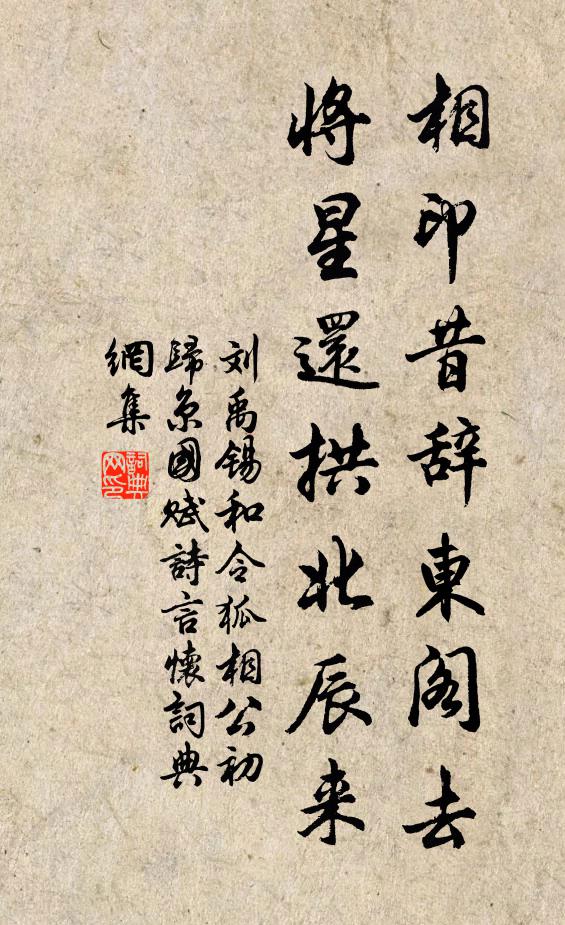 相印昔辞東阁去
将星還拱北辰来
刘禹锡和令狐相公初
歸京國赋詩言懷詞典
網集
詞典
网印